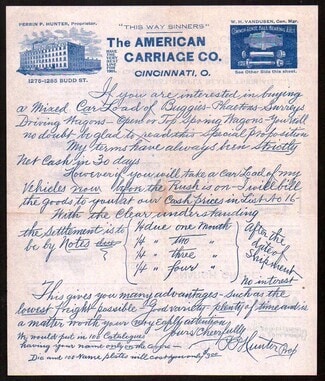 PERRIN P. HUNTER, Proprietor.
"THIS WAY SINNERS"
W. H. VANDUSEN, Gen. Mgr.
The AMERICAN
CARRIAGE CO.
CINCINNATI, O.
1275-1285 BUDD ST.
See Other Side this sheet.
If you are interested in buying
a Mixed Car Load of Buggies - Phaetons - Surreys
Driving Wagons - Open or Top Spring Wagons - You will
no doubt be glad to read this Special Proposition
My terms have always been Strictly
Net Cash in 30 days
However if you will take a Car Load of my
Vehicles now when the Rush is on - I will bill
the goods to you at our Cash prices in List No 16 -
With the Clear understanding
the Settlement is to
be by Notes due
1/4 due one Month
1/4 " two "
1/4 " three "
1/4 " four "
After the
date of
Shipment
No interest
This gives you many advantages - such as the
lowest freight possible - Good variety plenty of time and is
a matter worth your very Early attention
Yours Cheerfully
P P Hunter Prop
We would put in 100 Catalogues
having your name only on the
Die and 100 Name plates will cost you